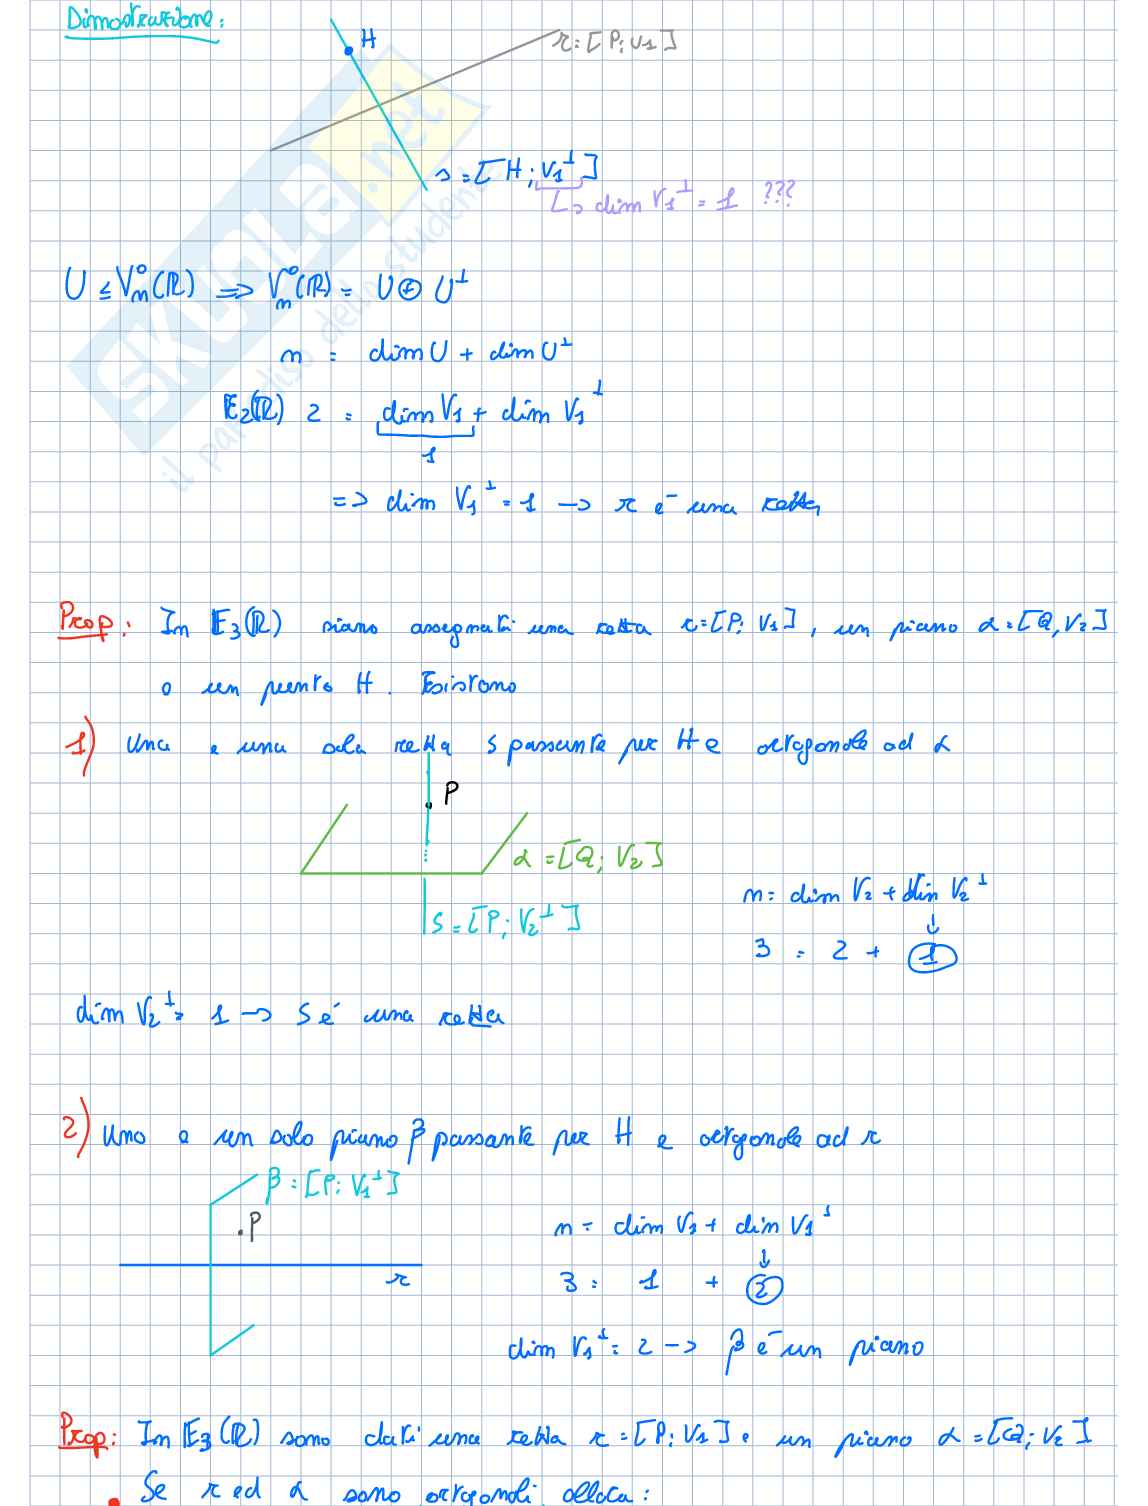 Dimostrazione:
H
r=[P;V₁]
s=[H;V₁^⊥]
↳ dim V₁^⊥ = 1 ???
U ≤ Vₙ⁰(ℝ) ⟹ Vₙ⁰(ℝ) = U ⊕ U^⊥
n = dim U + dim U^⊥
E₂(ℝ) 2 = dim V₁ + dim V₁^⊥
1
=> dim V₁^⊥ = 1 -> r è una retta
Prop: In E₃(ℝ) siano assegnati una retta r=[P; V₁], un piano α=[Q, V₂]
e un punto H. Esistono
1) Una e una sola retta s passante per H e ortogonale ad α
P
α=[Q; V₂]
s=[P; V₂^⊥]
n = dim V₂ + dim V₂^⊥
↓
3 = 2 + 1
dim V₂^⊥ = 1 -> s é una retta
2) Uno e un solo piano β passante per H e ortgonole ad r
β=[P; V₁^⊥]
.P
r
n = dim V₁ + dim V₁^⊥
↓
3 = 1 + 2
dim V₁^⊥ = 2 -> β è un piano
Prop: In E₃(ℝ) sono dati una retta r=[P; V₁] e un piano α=[Q; V₂]
• Se r ed α sono ortogonali allora:
SKUOLA.net
il paradiso dello studente